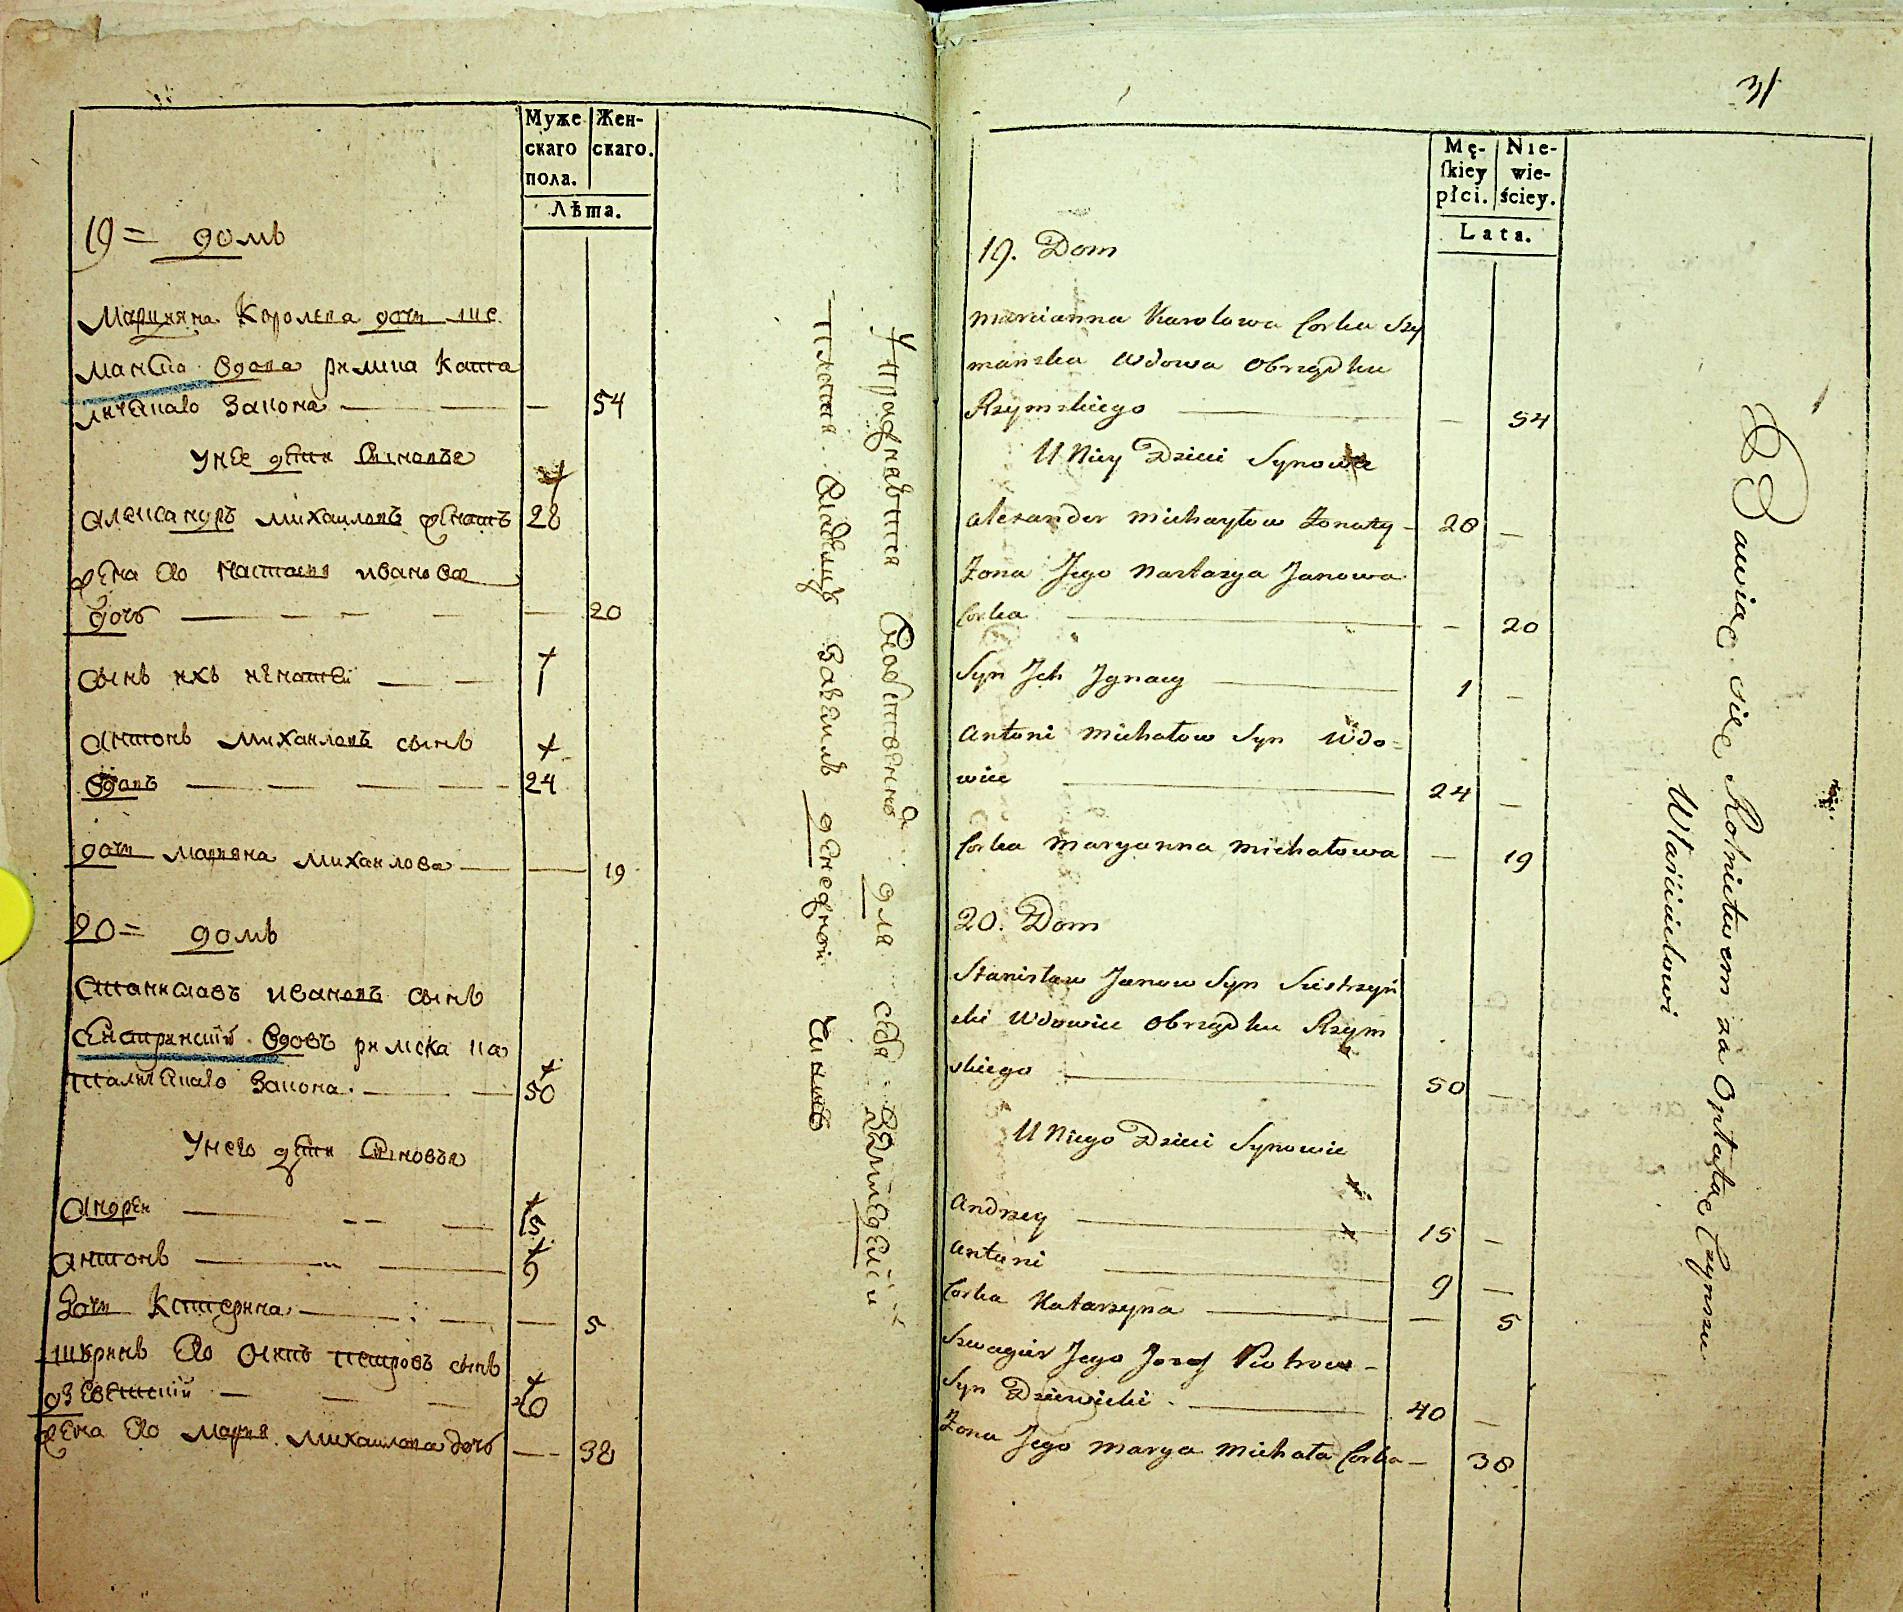 Муже
скаго
пола.
Жен-
скаго.
Лѣта.
19 = домъ
Марияна Королева дочь ши
манска вдова римска като
лическаго закона — — 54
У нее дети сыновье
Александръ Михаиловъ женатъ 28
жена его Настасия Иванова
дочь — — — 20
сынъ ихъ Игнатей — — 1
Антонъ Михаиловъ сынъ
вдовъ — — — — 24
дочь Марияна Михаилова — — 19
20 = домъ
Станиславъ Ивановъ сынъ
вдовъ римска ка
толическаго закона. — — 50
У него дети сыновья
Андреи — — — 15
Антонъ — — — 9
дочь Катерина — — — 5
шуринъ его Осипъ Петровъ сынъ
— — — 40
жена его Мария Михаилова дочь — 38
Упражняются собственно для себя
Платят владельцу денежной чиншъ
31
Mę-
skiey
płci.
Nie-
wie-
ściey.
Lata.
19. Dom
Marcianna Karolowa Corka Szy
manska Wdowa Obrządku
Rzymskiego — — 54
U Niey Dzieci Synowie
Alexander Michayłow Żonaty - 28 —
Żona Jego Nastazya Janowa
Corka — — 20
Syn Jch Jgnacy — 1 —
Antoni Michałow Syn Wdo=
wiec — 24 —
Corka Maryanna Michałowa — 19
20. Dom
Stanisław Janow Syn Siestrzyń
ski Wdowiec Obrządku Rzym
skiego — 50 —
U Niego Dzieci Synowie
Andrzey — 15 —
Antoni — 9 —
Corka Katarzyna — — 5
Szwagier Jego Jozef Piotrow -
Syn Dziewicki. — 40 —
Żona Jego Marya Michała Corka — 38
Bawiąc się Rolnictwem za Opłatą Czynszu
Właścicielowi